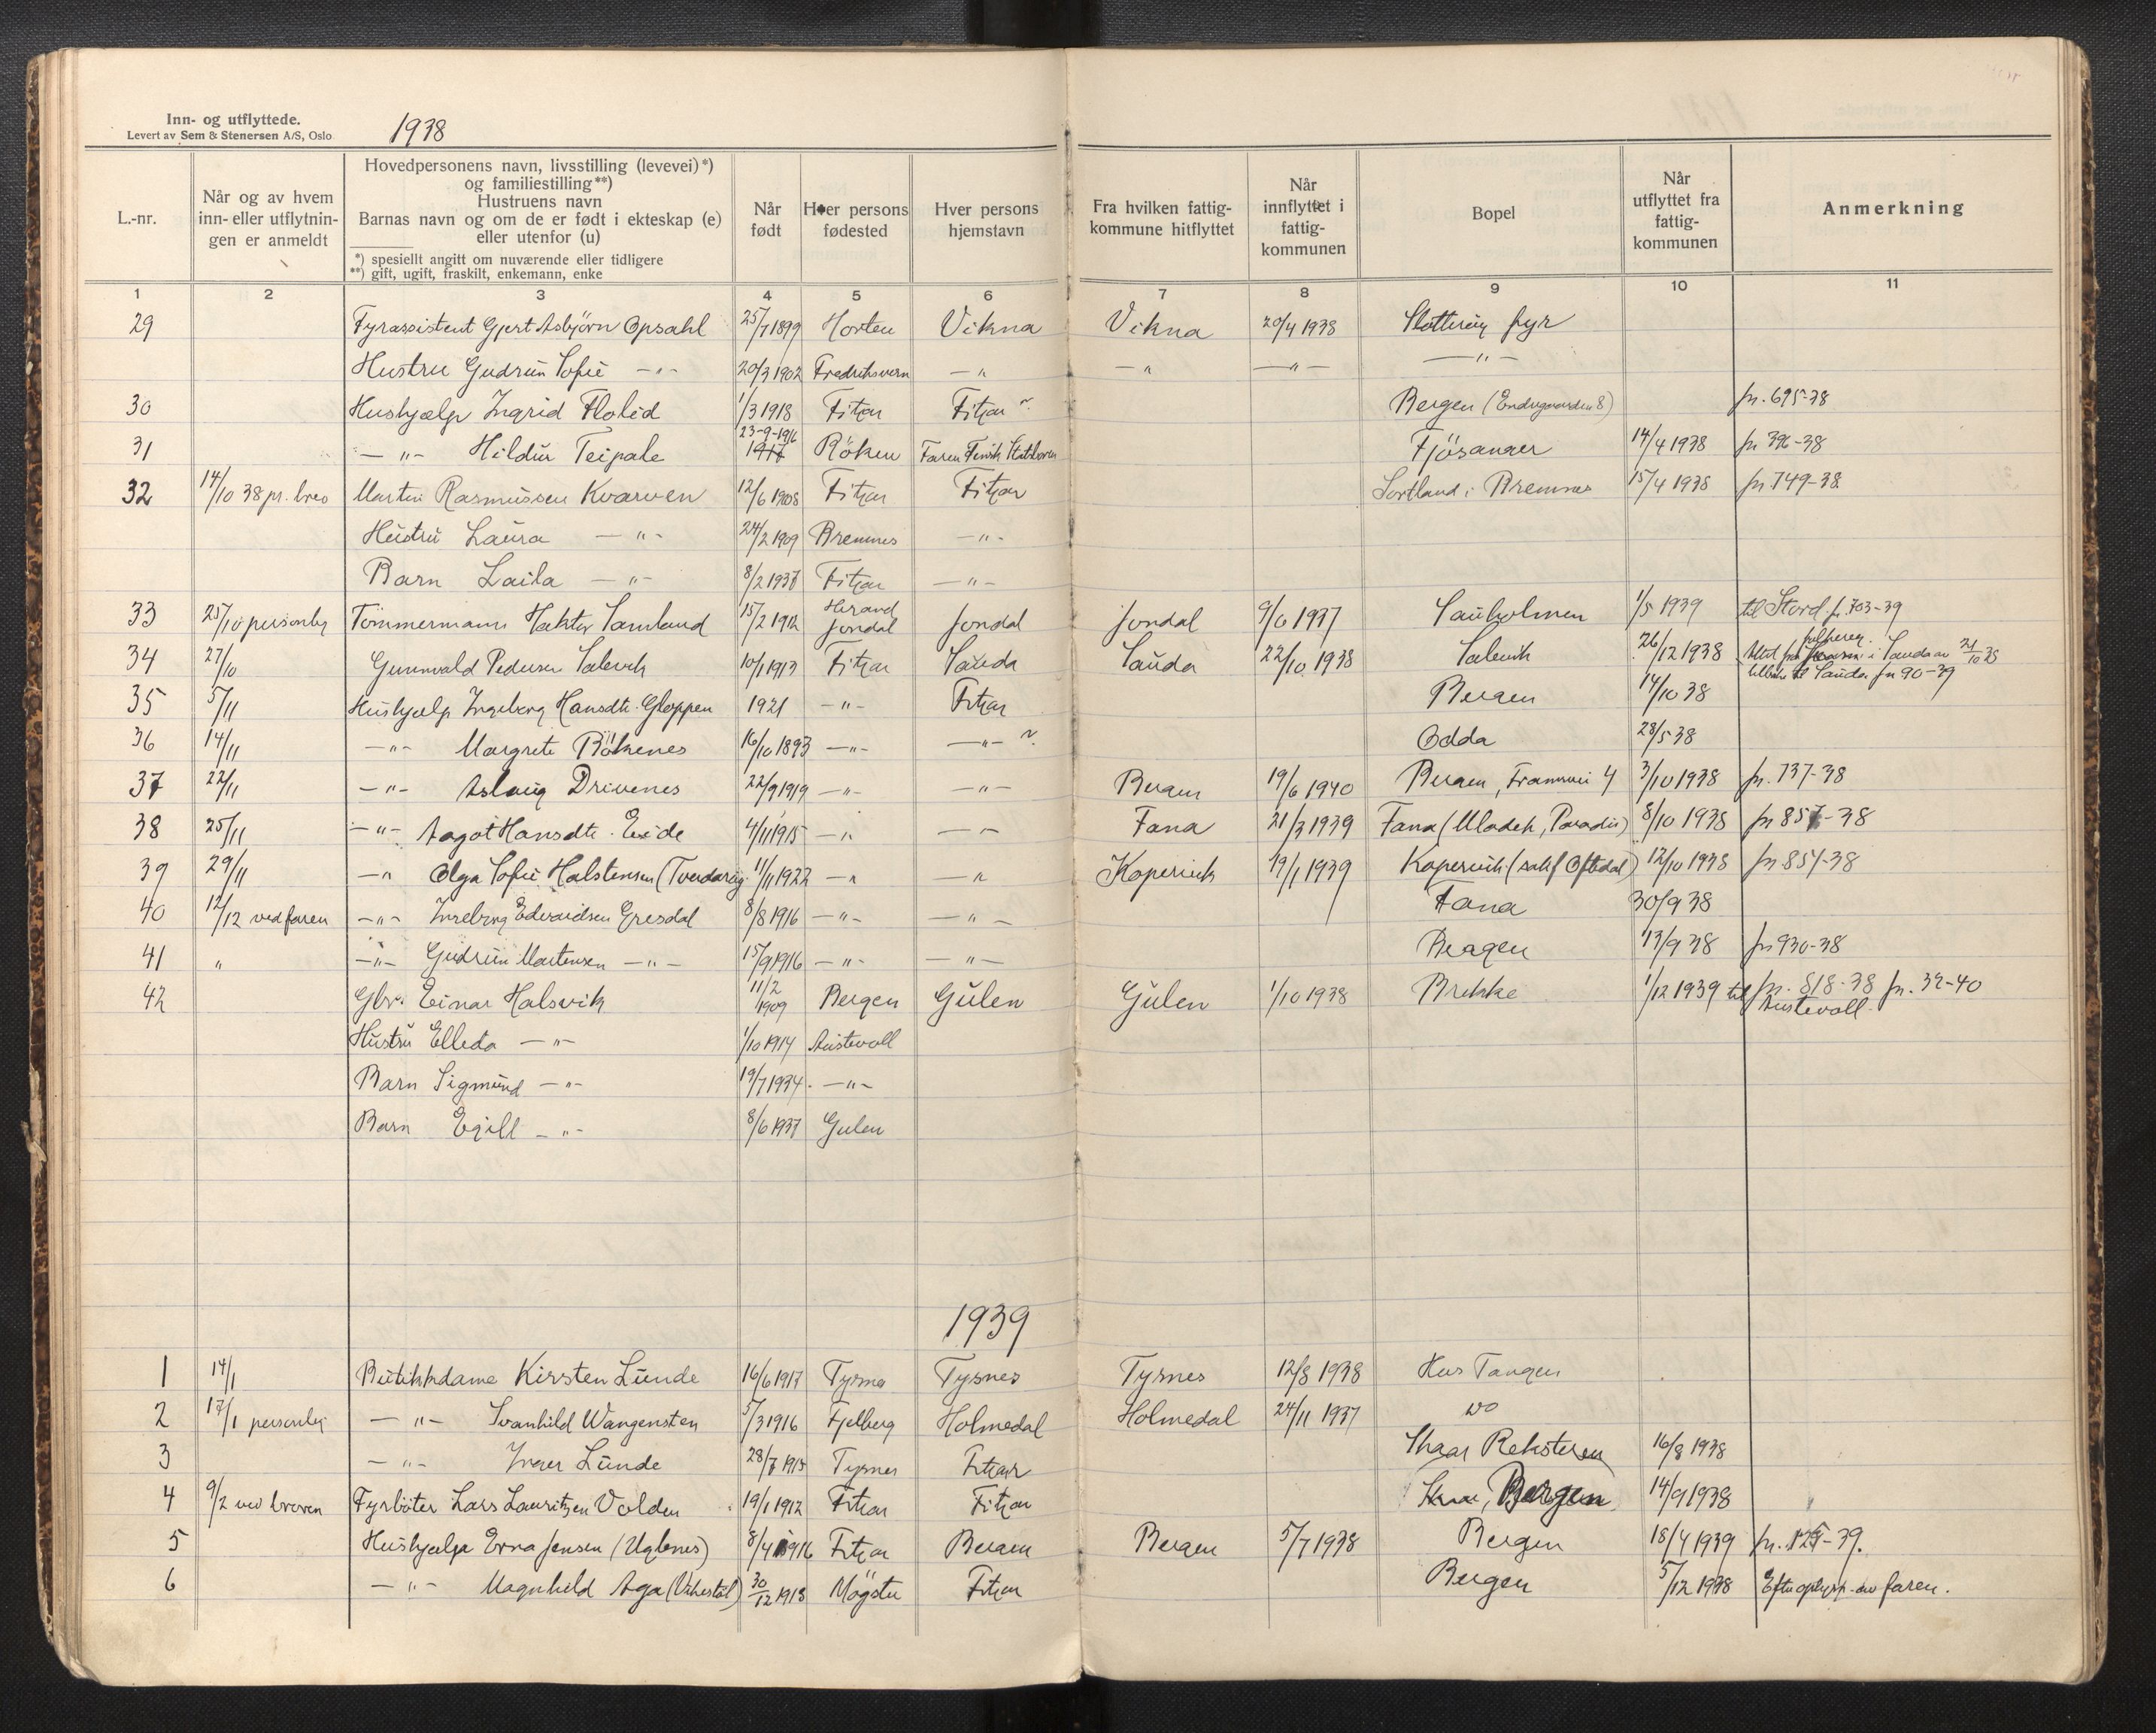 Inn- og utflyttede.
Levert av Sem & Stenersen A/S, Oslo
1938
L.-nr. Når og av hvem inn- eller utflytnin-gen er anmeldt Hovedpersonens navn, livsstilling (levevei)*) og familiestilling**) Hustruens navn Barnas navn og om de er født i ekteskap (e) eller utenfor (u) *) spesiellt angitt om nuværende eller tidligere **) gift, ugift, fraskilt, enkemann, enke Når født Hver persons fødested Hver persons hjemstavn Fra hvilken fattig-kommune hitflyttet Når innflyttet i fattig-kommunen Bopel Når utflyttet fra fattig-kommunen Anmerkning
1 2 3 4 5 6 7 8 9 10 11
29 Fyrassistent Gjert Asbjörn Opsahl 25/7 1899 Horten Vikna Vikna 20/4 1938 Slotteröy fyr
Hustru Gudrun Sofie —"— 20/3 1902 Fredriksvern —" —" —"— —"—
30 Hushjælp Ingrid Flolid 1/3 1918 Fitjar Fitjar Bergen (Endregaarden 8) jn. 695-38
31 —"— Hildur Teipale 23-9-1916 1917 Röken Faren Finsk Statsboren Fjösanger 14/4 1938 jn 396-38
32 14/10 38 pr. brev Martin Rasmussen Kvarven 12/6 1908 Fitjar Fitjar Sortland i Bremnes 15/4 1938 jn 749-38
Hustru Laura —"— 24/2 1909 Bremnes —"—
Barn Laila —"— 8/2 1937 Fitjar —"—
33 25/10 personlig Tömmermann Hektor Samland 15/2 1912 Herand Jondal Jondal Jondal 9/6 1937 Sauholmen 1/5 1939 til Stord. jn. 703-39
34 27/10 Gunnvald Pedersen Salevik 10/1 1913 Fitjar Sauda Sauda 22/10 1938 Salevik 26/12 1938 i Sauda av 21/10 38 tilbake til Sauda jn 90-39
35 5/11 Hushjælp Ingeborg Hansdtr. Gloppen 1921 —"— Fitjar Bergen 14/10 38
36 14/11 —"— Margrete Rökenes 16/10 1893 —"— —"— Odda 28/5 38
37 22/11 —"— Aslaug Drivenes 22/9 1919 —"— —"— Bergen 19/6 1940 Bergen, Framvei 4 3/10 1938 jn. 737-38
38 25/11 —"— Aagot Hansdtr. Eide 4/11 1915 —" —"— Fana 21/3 1939 Fana (Mladek, Paradis) 8/10 1938 jn 857-38
39 29/11 —" Olga Sofie Halstensen (Tveidaröy) 11/11 1922 —" —" Kopervik 19/1 1939 Kopervik (sakf Oftedal) 12/10 1938 jn 857-38
40 12/12 ved faren —"— Ingeborg Edvardsen Gresdal 8/8 1916 —"— —"— Fana 30/9 38
41 " —"— Gudrun Martensen —"— 15/9 1916 —"— —"— Bergen 13/9 38 jn 930-38
42 Gbr. Einar Halsvik 11/2 1909 Bergen Gulen Gulen 1/10 1938 Brekke 1/12 1939 til Austevoll jn. 818-38 jn. 32-40
Hustru Elleda —"— 1/10 1914 Austevoll
Barn Sigmund —"— 19/7 1934. —"—
Barn Egill —"— 8/6 1937 Gulen
1939
1 14/1 Butikkdame Kirsten Lunde 16/6 1917 Tysnes Tysnes Tysnes 12/8 1938 Hus Tangen
2 17/1 personlig —"— Svanhild Wangensten 5/3 1916 Fjelberg Holmedal Holmedal 24/11 1937 do
3 —"— Inger Lunde 28/7 1915 Tysnes Fitjar Skaar Reksteren 16/8 1938
4 9/2 ved broren Fyrböter Lars Lauritzen Volden 19/1 1912 Fitjar Fitjar Bergen 14/9 1938
5 Hushjælp Erna Jensen (Uglenes) 8/4 1916 Fitjar Bergen Bergen 5/7 1938 Bergen 18/4 1939 jn. 125-39.
6 —"— Magnhild Aga (Vikestøl) 30/12 1918 Mögster Fitjar Bergen 5/12 1938 Efter oplysn. av faren.